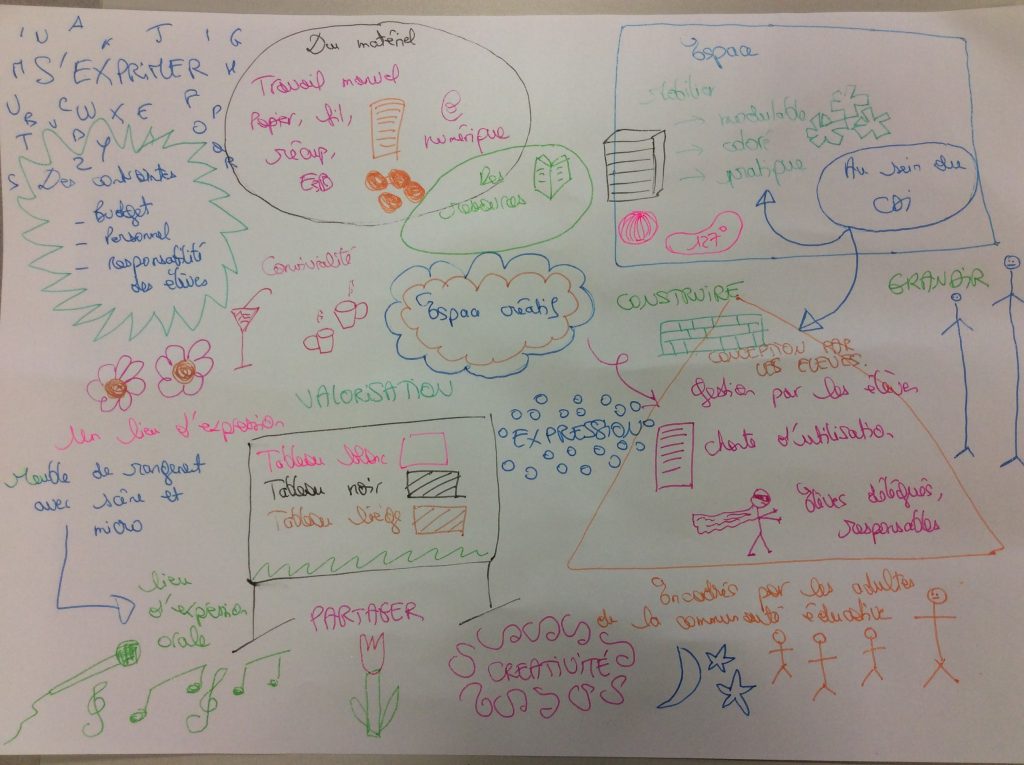 S'EXPRIMER
Des contraintes
- Budget
- Personnel
- responsabilité
des élèves
Du matériel
Travail manuel
Papier, fil,
récup,
numérique
Des
ressources
Espace
Mobilier
→ modulable
→ coloré
→ pratique
127°
Au sein du
CDI
Convivialité
Espace créatif
CONSTRUIRE
GRANDIR
CONCEPTION PAR
LES ELEVES.
Gestion par les élèves
charte d'utilisation
élèves délégués,
responsables
Encadrés par les adultes
de la communauté éducative
VALORISATION
Un lieu d'expression
EXPRESSION
Tableau blanc
Tableau noir
Tableau liège
Meuble de rangement
avec scène et
micro
lieu
d'expression
orale
PARTAGER
CREATIVITÉ